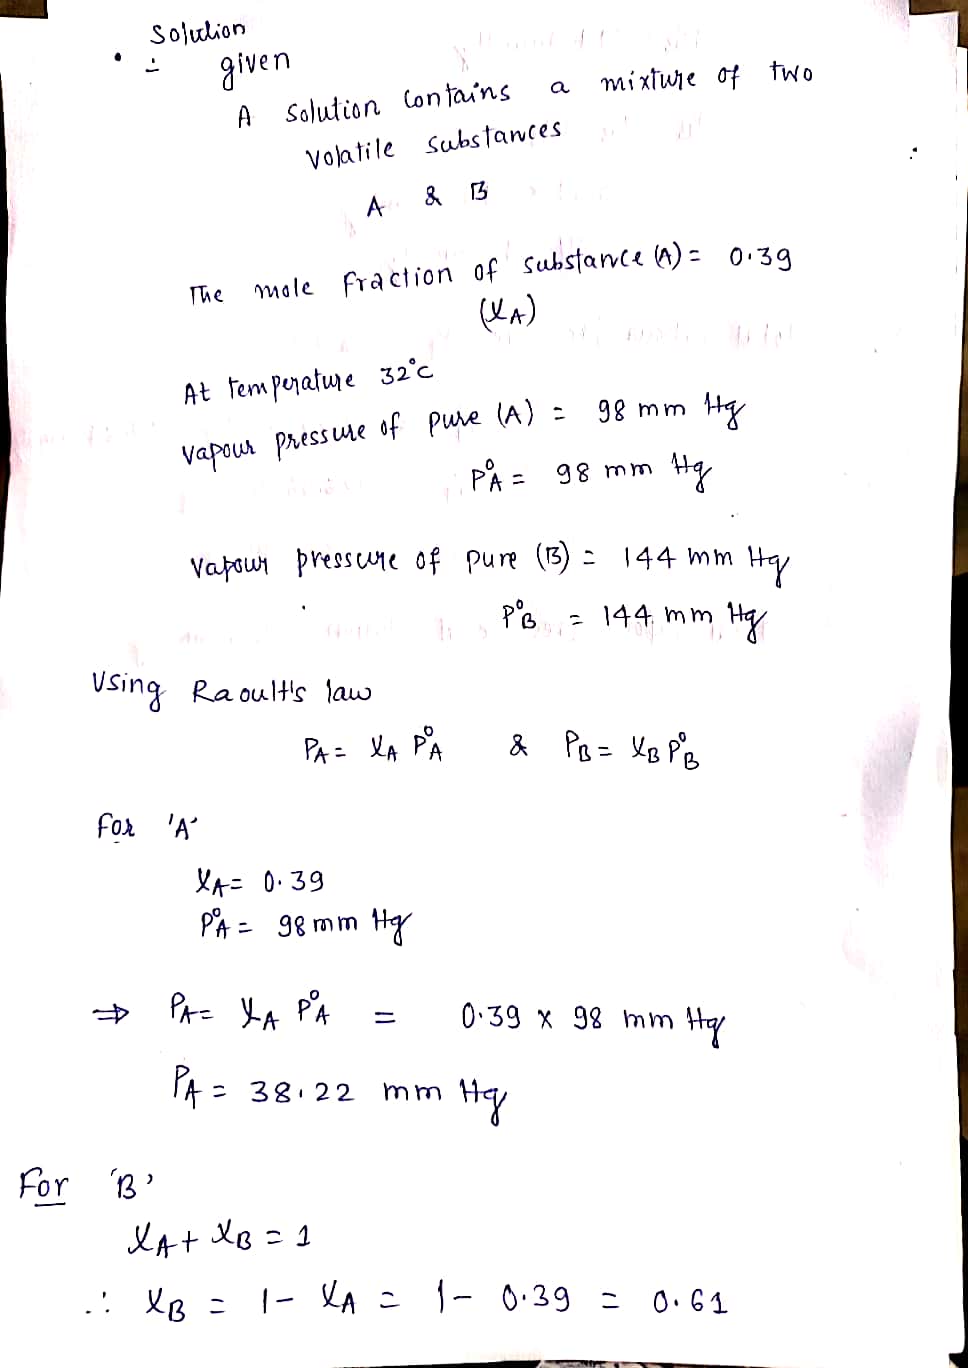 Solution
∴ given
A solution contains a mixture of two
volatile substances
A & B
The mole fraction of substance (A) = 0.39
(XA)
At temperature 32°C
vapour pressure of pure (A) = 98 mm Hg
P°A = 98 mm Hg
Vapour pressure of pure (B) = 144 mm Hg
P°B = 144 mm Hg
Using Raoult's law
PA = XA P°A & PB = XB P°B
For 'A'
XA = 0.39
P°A = 98 mm Hg
⇒ PA = XA P°A = 0.39 x 98 mm Hg
PA = 38.22 mm Hg
For 'B'
XA + XB = 1
∴ XB = 1 - XA = 1 - 0.39 = 0.61